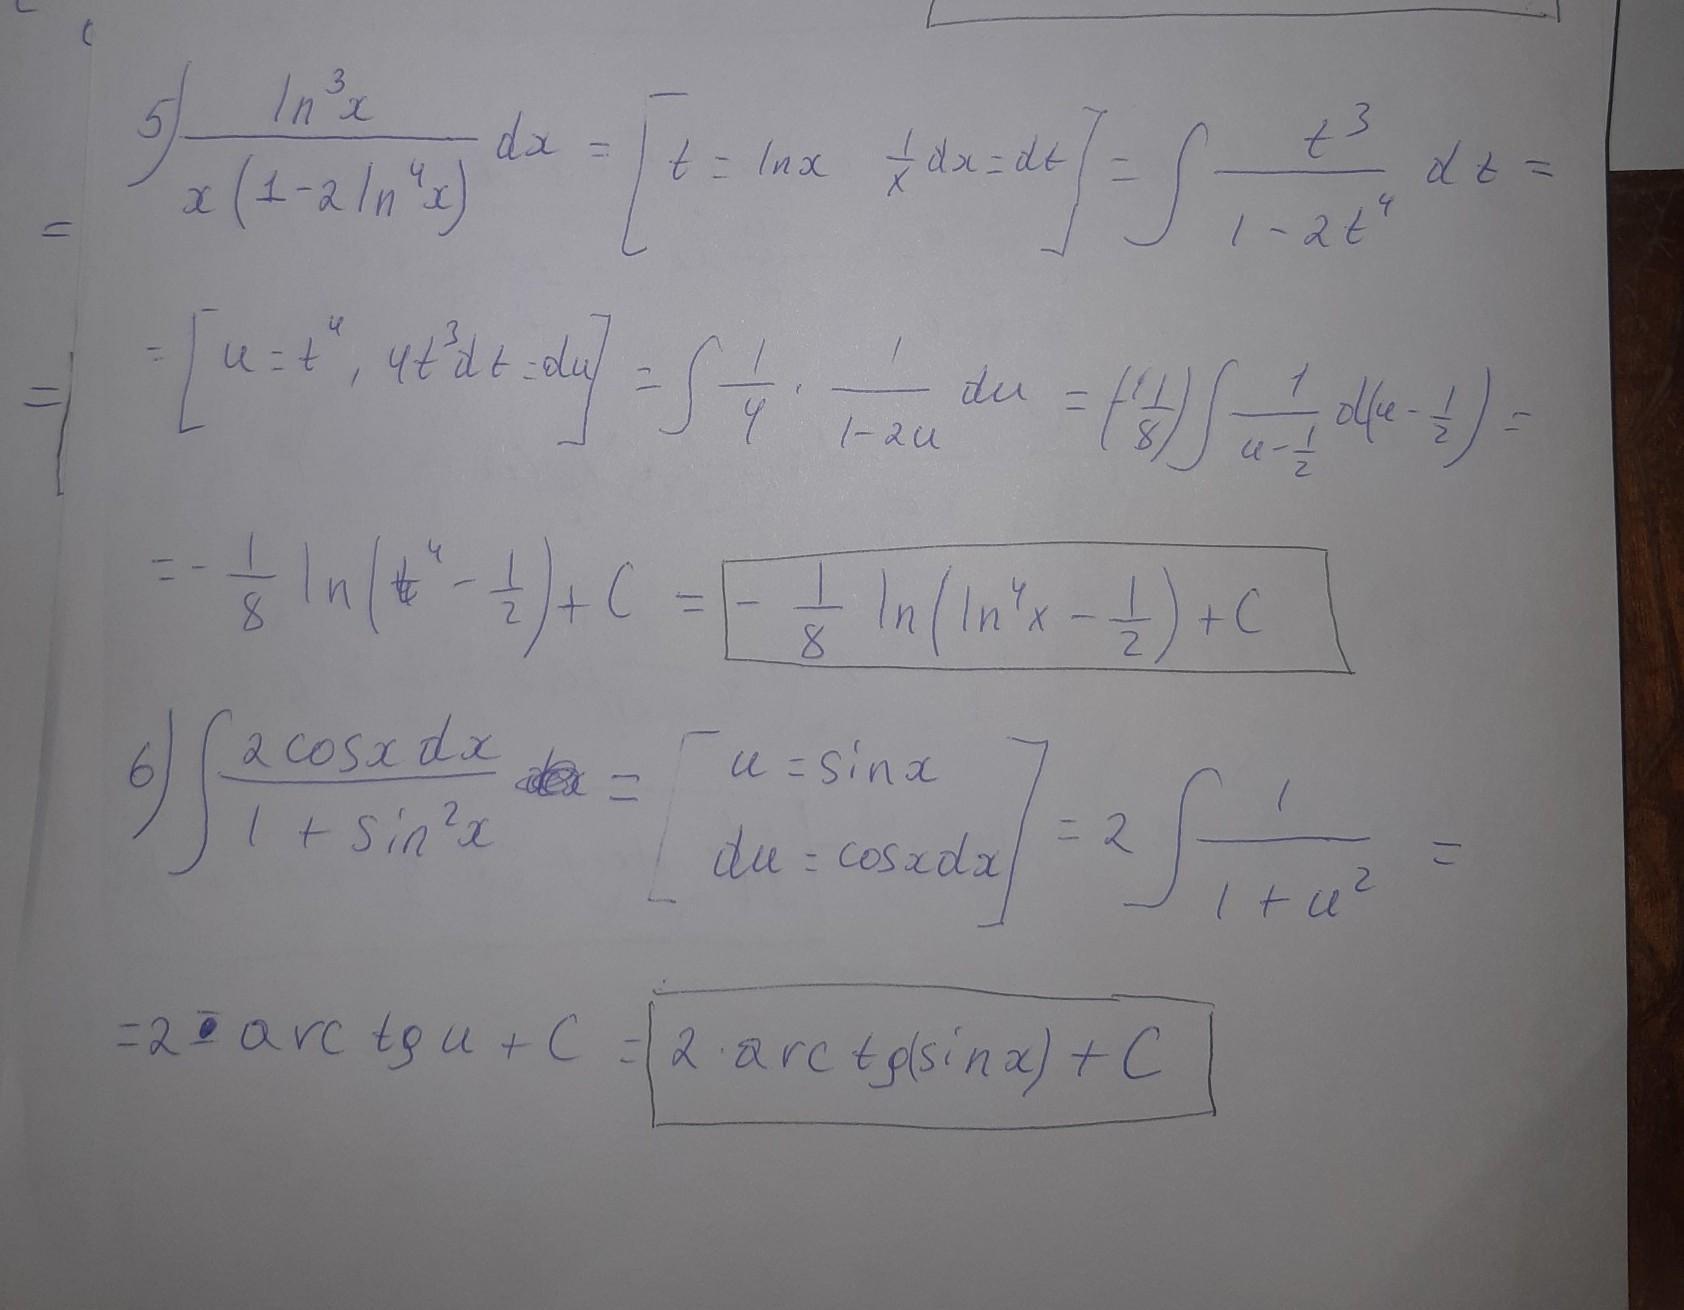 5) ln³x / x(1-2ln⁴x) dx = [t = lnx 1/x dx = dt] = ∫ t³ / 1-2t⁴ dt =
= [u = t⁴, 4t³dt = du] = ∫ 1/4 · 1 / 1-2u du = (-1/8) ∫ 1 / u-1/2 d(u-1/2) =
= - 1/8 ln(t⁴ - 1/2) + C = - 1/8 ln(ln⁴x - 1/2) + C
6) ∫ 2cosx dx / 1 + sin²x = [u = sinx du = cosxdx] = 2 ∫ 1 / 1 + u² =
= 2 · arc tg u + C = 2 · arc tg(sinx) + C